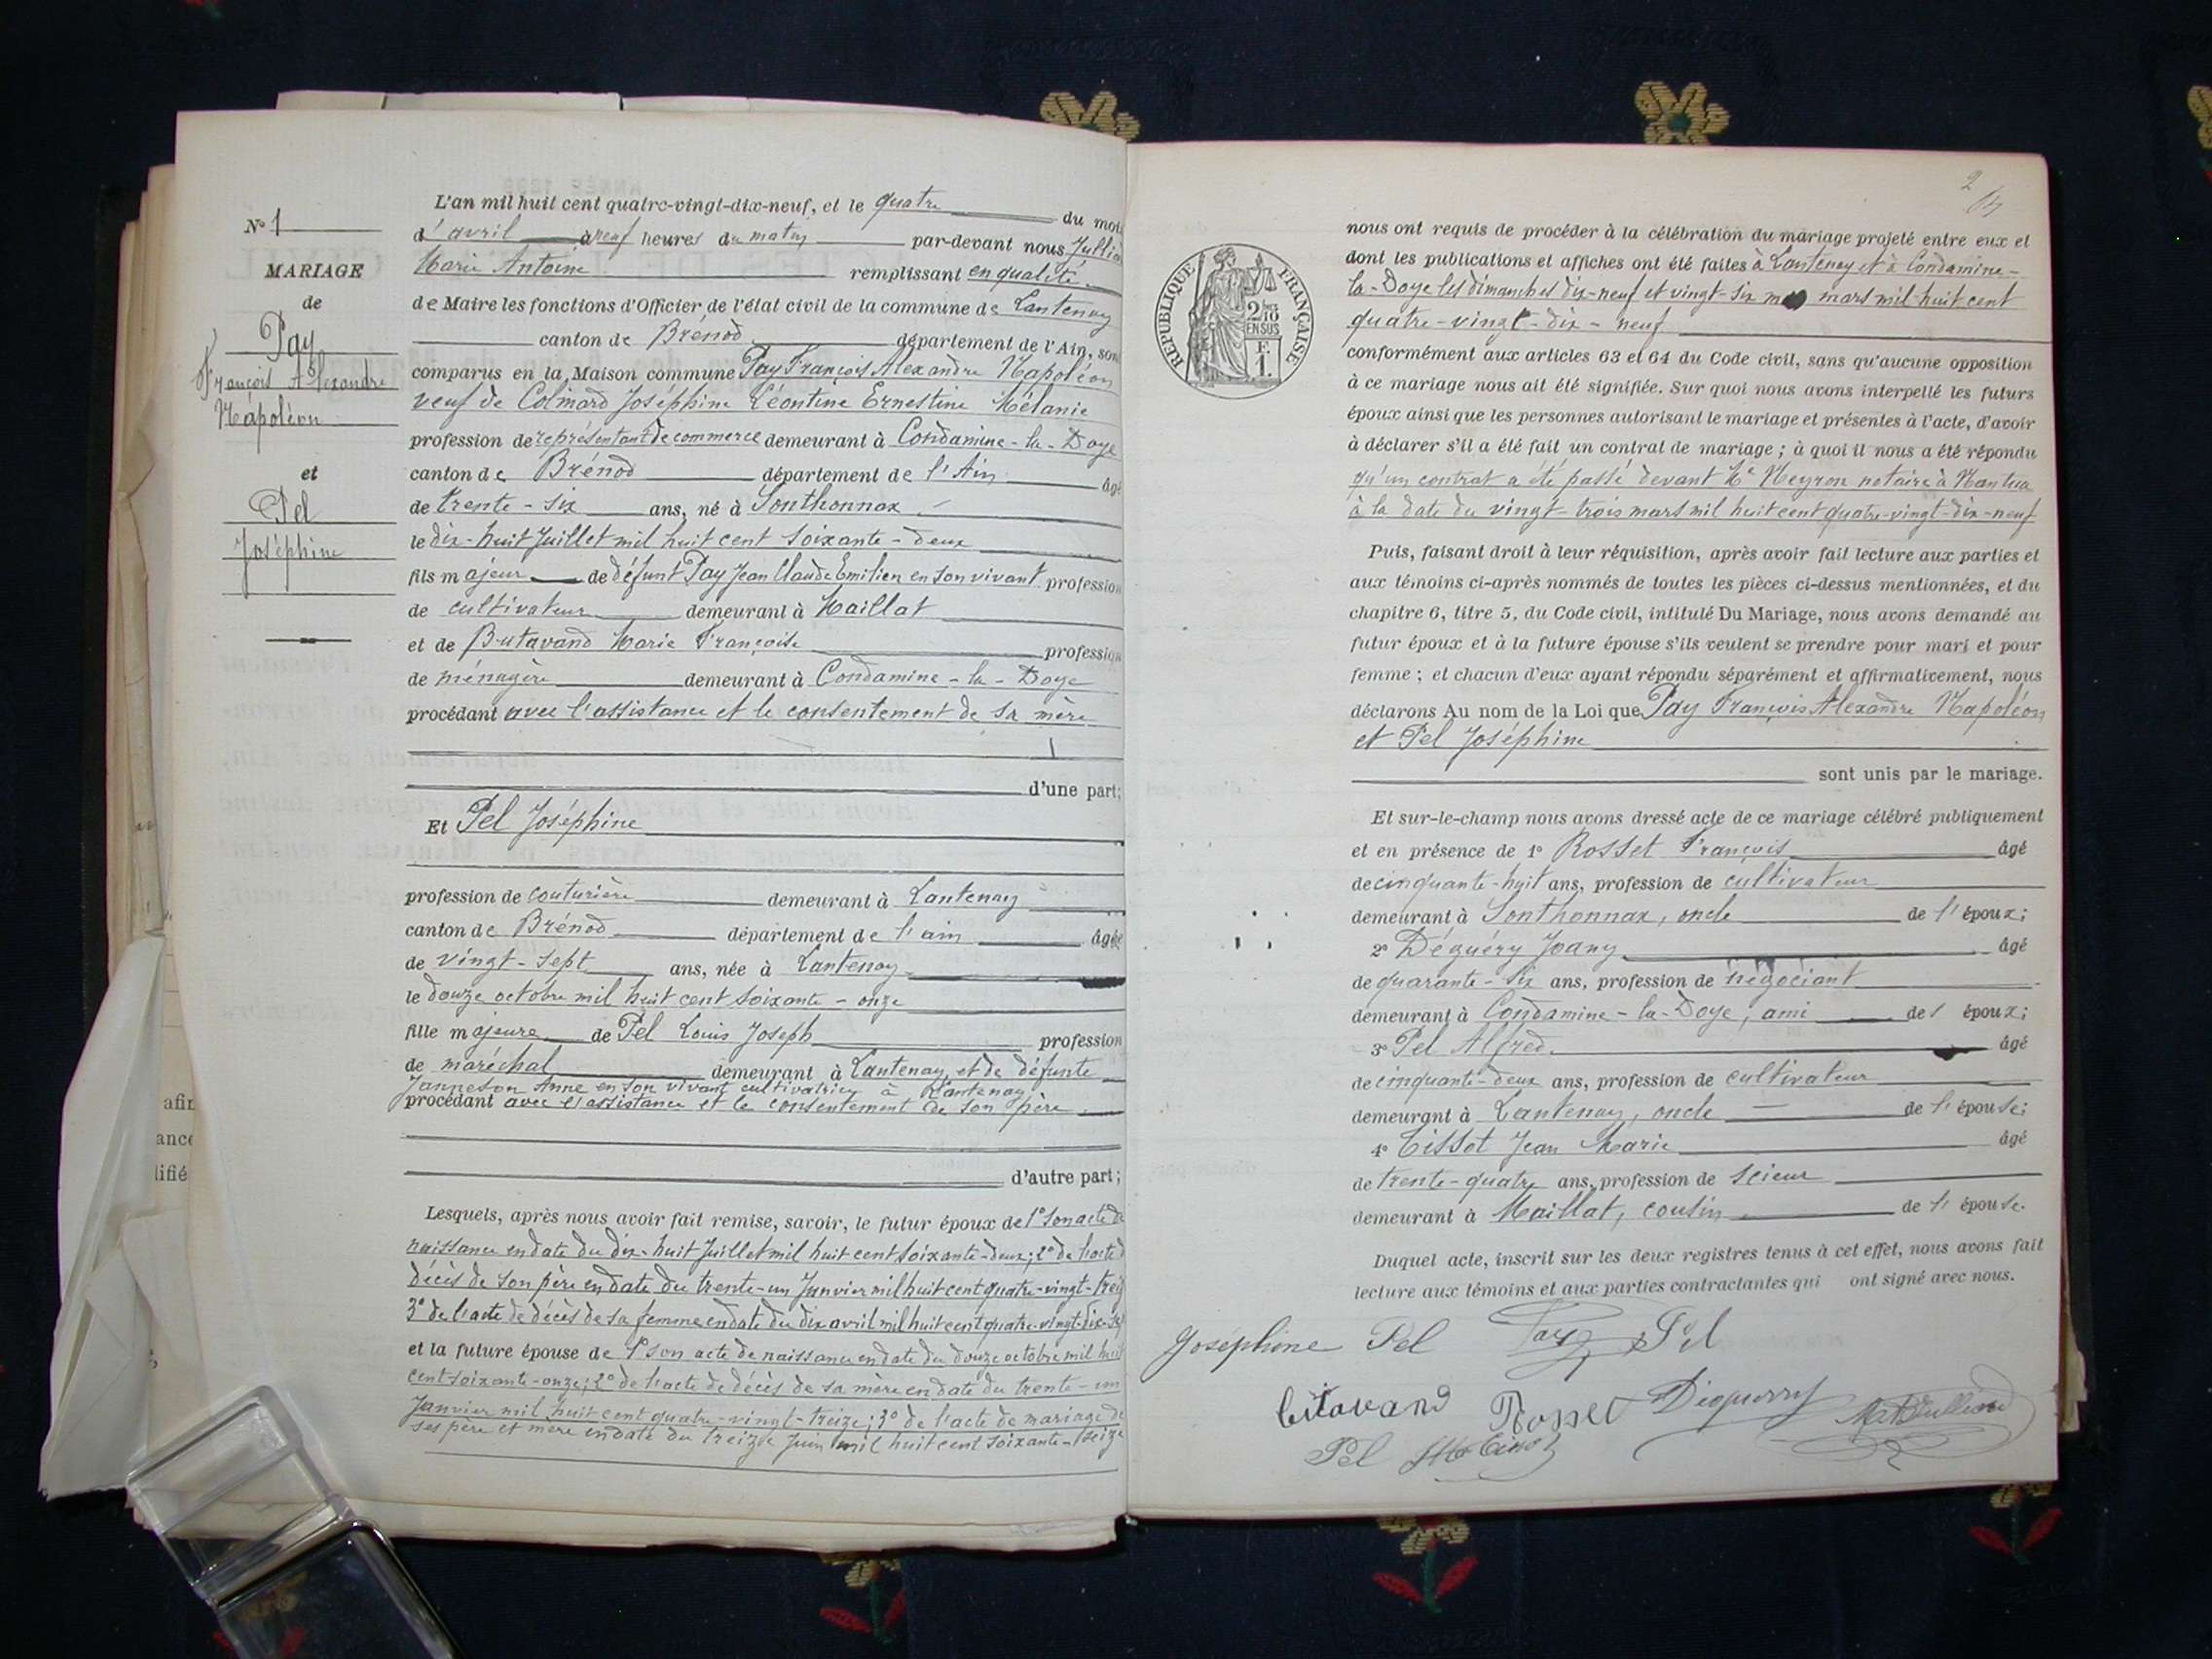 N° 1
MARIAGE
de
Pay
François Alexandre
Napoléon
et
Pel
Joséphine
L'an mil huit cent quatre-vingt-dix-neuf, et le quatre du mois
d'avril à neuf heures du matin par-devant nous Jullia
Marie Antoine remplissant en qualité
de Maire les fonctions d'Officier de l'état civil de la commune de Lantenay
canton de Brénod département de l'Ain, son
comparus en la Maison commune Pay François Alexandre Napoléon
veuf de Colmard Joséphine Léontine Ernestine Mélanie
profession de représentant de commerce demeurant à Condamine-la-Doye
canton de Brénod département de l'Ain âgé
de trente-six ans, né à Sonthonnax
le dix-huit Juillet mil huit cent soixante-deux
fils majeur de défunt Pay Jean Claude Emilien en son vivant profession
de cultivateur demeurant à Maillat
et de Butavand Marie Françoise profession
de ménagère demeurant à Condamine-la-Doye
procédant avec l'assistance et le consentement de sa mère
d'une part;
Et Pel Joséphine
profession de couturière demeurant à Lantenay
canton de Brénod département de l'ain âgée
de vingt-sept ans, née à Lantenay
le douze octobre mil huit cent soixante-onze
fille majeure de Pel Louis Joseph profession
de maréchal demeurant à Lantenay et de défunte
Janneson Anne en son vivant cultivatrice à Lantenay
procédant avec l'assistance et le consentement de son père
d'autre part;
Lesquels, après nous avoir fait remise, savoir, le futur époux de 1° son acte de
naissance en date du dix-huit Juillet mil huit cent soixante-deux; 2° de l'acte d
décès de son père en date du trente-un Janvier mil huit cent quatre-vingt-trei
3° de l'acte de décès de sa femme en date du dix avril mil huit cent quatre-vingt-dix-se
et la future épouse de 1° son acte de naissance en date du douze octobre mil huit
cent soixante-onze; 2° de l'acte de décès de sa mère en date du trente-un
Janvier mil huit cent quatre-vingt-treize; 3° de l'acte de mariage de
ses père et mère en date du treize Juin mil huit cent soixante-seize
2
RÉPUBLIQUE FRANÇAISE
2/10
EN SUS
F.
1.
nous ont requis de procéder à la célébration du mariage projeté entre eux et
dont les publications et affiches ont été faites à Lantenay et à Condamine-
la-Doye les dimanches dix-neuf et vingt-six mars mil huit cent
quatre-vingt-dix-neuf
conformément aux articles 63 et 64 du Code civil, sans qu'aucune opposition
à ce mariage nous ait été signifiée. Sur quoi nous avons interpellé les futurs
époux ainsi que les personnes autorisant le mariage et présentes à l'acte, d'avoir
à déclarer s'il a été fait un contrat de mariage; à quoi il nous a été répondu
qu'un contrat a été passé devant Me Neyron notaire à Nantua
à la date du vingt-trois mars mil huit cent quatre-vingt-dix-neuf
Puis, faisant droit à leur réquisition, après avoir fait lecture aux parties et
aux témoins ci-après nommés de toutes les pièces ci-dessus mentionnées, et du
chapitre 6, titre 5, du Code civil, intitulé Du Mariage, nous avons demandé au
futur époux et à la future épouse s'ils veulent se prendre pour mari et pour
femme; et chacun d'eux ayant répondu séparément et affirmativement, nous
déclarons Au nom de la Loi que Pay François Alexandre Napoléon
et Pel Joséphine
sont unis par le mariage.
Et sur-le-champ nous avons dressé acte de ce mariage célébré publiquement
et en présence de 1° Rosset François âgé
de cinquante-huit ans, profession de cultivateur
demeurant à Sonthonnax, oncle de l'époux;
2° Déguéry Joany âgé
de quarante-six ans, profession de négociant
demeurant à Condamine-la-Doye, ami de l'époux;
3° Pel Alfred âgé
de cinquante-deux ans, profession de cultivateur
demeurant à Lantenay, oncle de l'épouse;
4° Tissot Jean Marie âgé
de trente-quatre ans, profession de scieur
demeurant à Maillat, cousin de l'épouse.
Duquel acte, inscrit sur les deux registres tenus à cet effet, nous avons fait
lecture aux témoins et aux parties contractantes qui ont signé avec nous.
Joséphine Pel Pay Pel
Butavand Rosset Déguerry
Pel JM Tissot
afin
ance
lifié